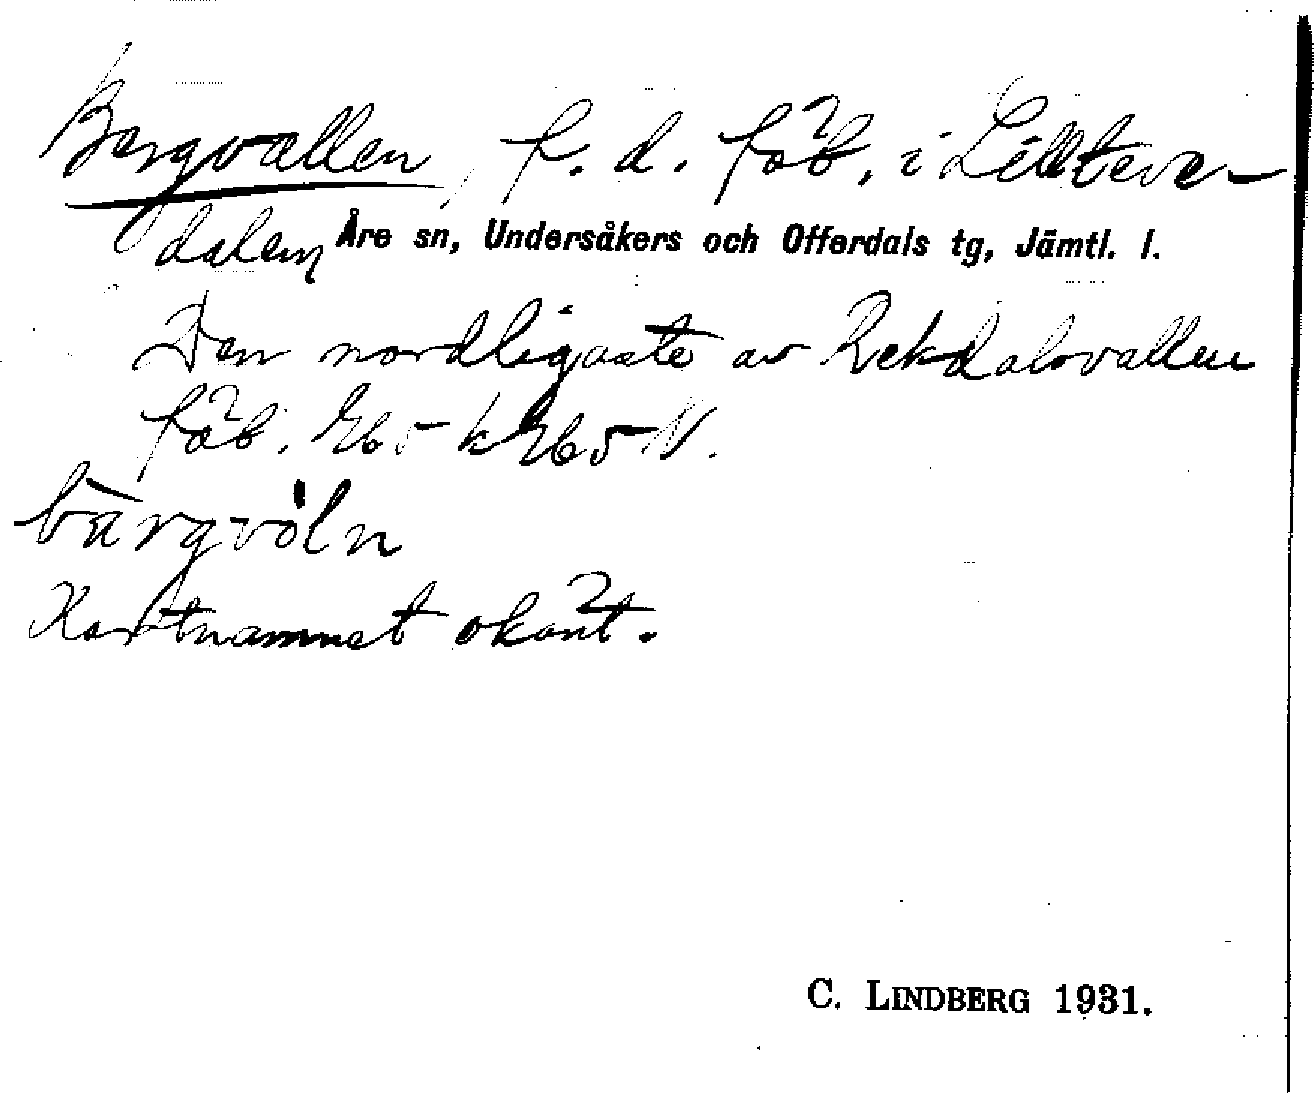 Bergvallen, f. d. fäb. i Lillteve-
dalen Åre sn, Undersåkers och Offerdals tg, Jämtl. l.
Den nordligaste av Rekdalsvallen
fäb.
bärgvöln
Kartnamnet okänt.
C. LINDBERG 1931.